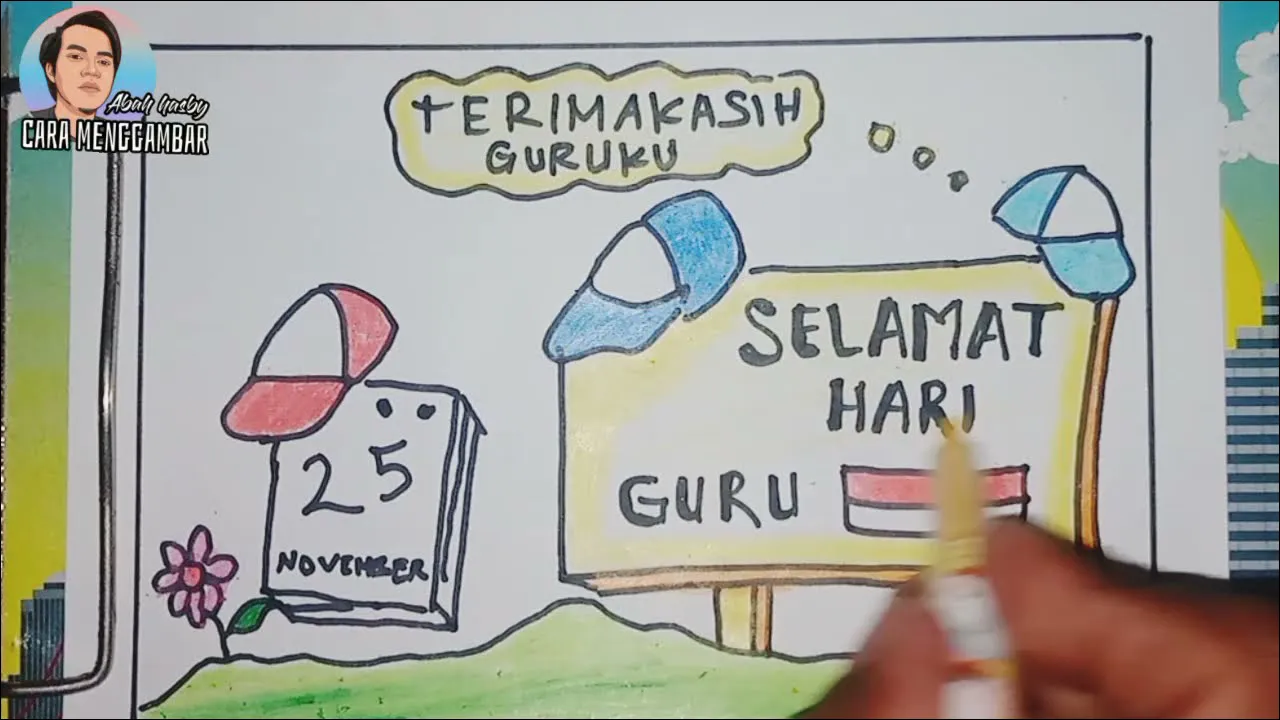 Abah hasby
CARA MENGGAMBAR
tERIMAKASIH
GURUKU
SELAMAT
HARI
GURU
25
NOVEMBER